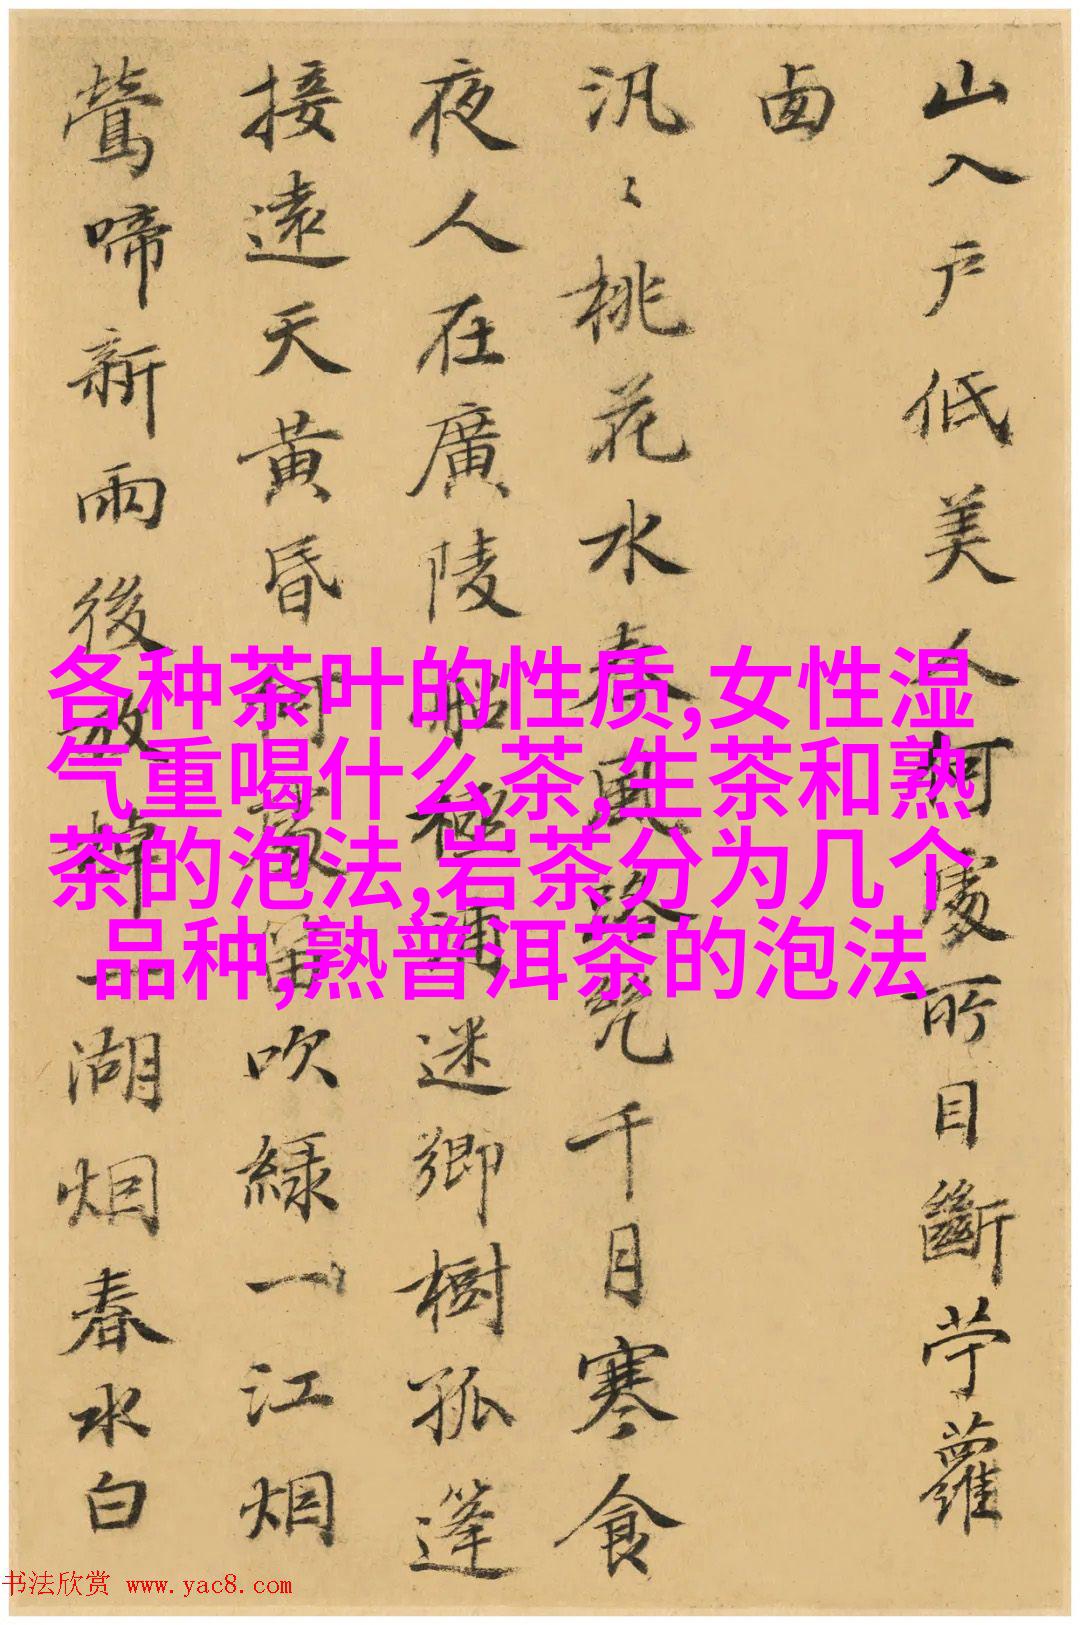 山入戶低美人何處所目斷苧蘿
汎〻桃花水春風千月寒食
夜人在廣陵船極浦迷鄉樹孤篷
接遠天黃昏何處笛吹綠一江烟
鶯啼新雨後放棹一湖烟春水白
各种茶叶的性质,女性湿
气重喝什么茶,生茶和熟
茶的泡法,岩茶分为几个
品种,熟普洱茶的泡法
书法欣赏 www.yac8.com